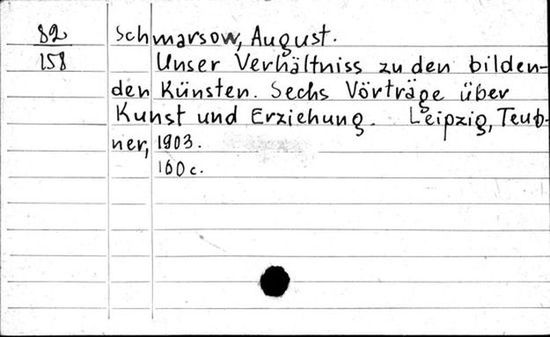 82 Schmarsow, August.
158 Unser Verhältniss zu den bilden-
den Künsten. Sechs Vörträge über
Kunst und Erziehung. Leipzig, Teub-
ner, 1903.
160 c.